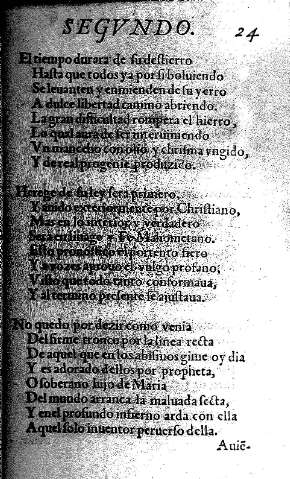 SEGVNDO. 24
El tiempo durara de su destierro
Hasta que todos ya por si boluiendo
Se leuanten y enmienden de su yerro
A dulce libertad camino abriendo.
La gran difficultad rompera el hierro,
Lo qual aura de ser interuiniendo
Vn mancebo con olio y chrisma vngido,
Y de real progenie produzido.
Herege de su ley sera primero.
Y auido por Christiano,
Mas en lo interior y verdadero
Mahometano.
fiero
el vulgo profano,
que todo tanto conformaua,
Y al termino presente se ajustaua.
No quedo por dezir como venia
Del firme tronco por la linea recta
De aquel que en los abismos gime oy dia
Y es adorado dellos por propheta,
O soberano hijo de Maria
Del mundo arranca la maluada secta,
Y en el profundo infierno arda con ella
Aquel solo inuentor peruerso della.
Auiẽ-